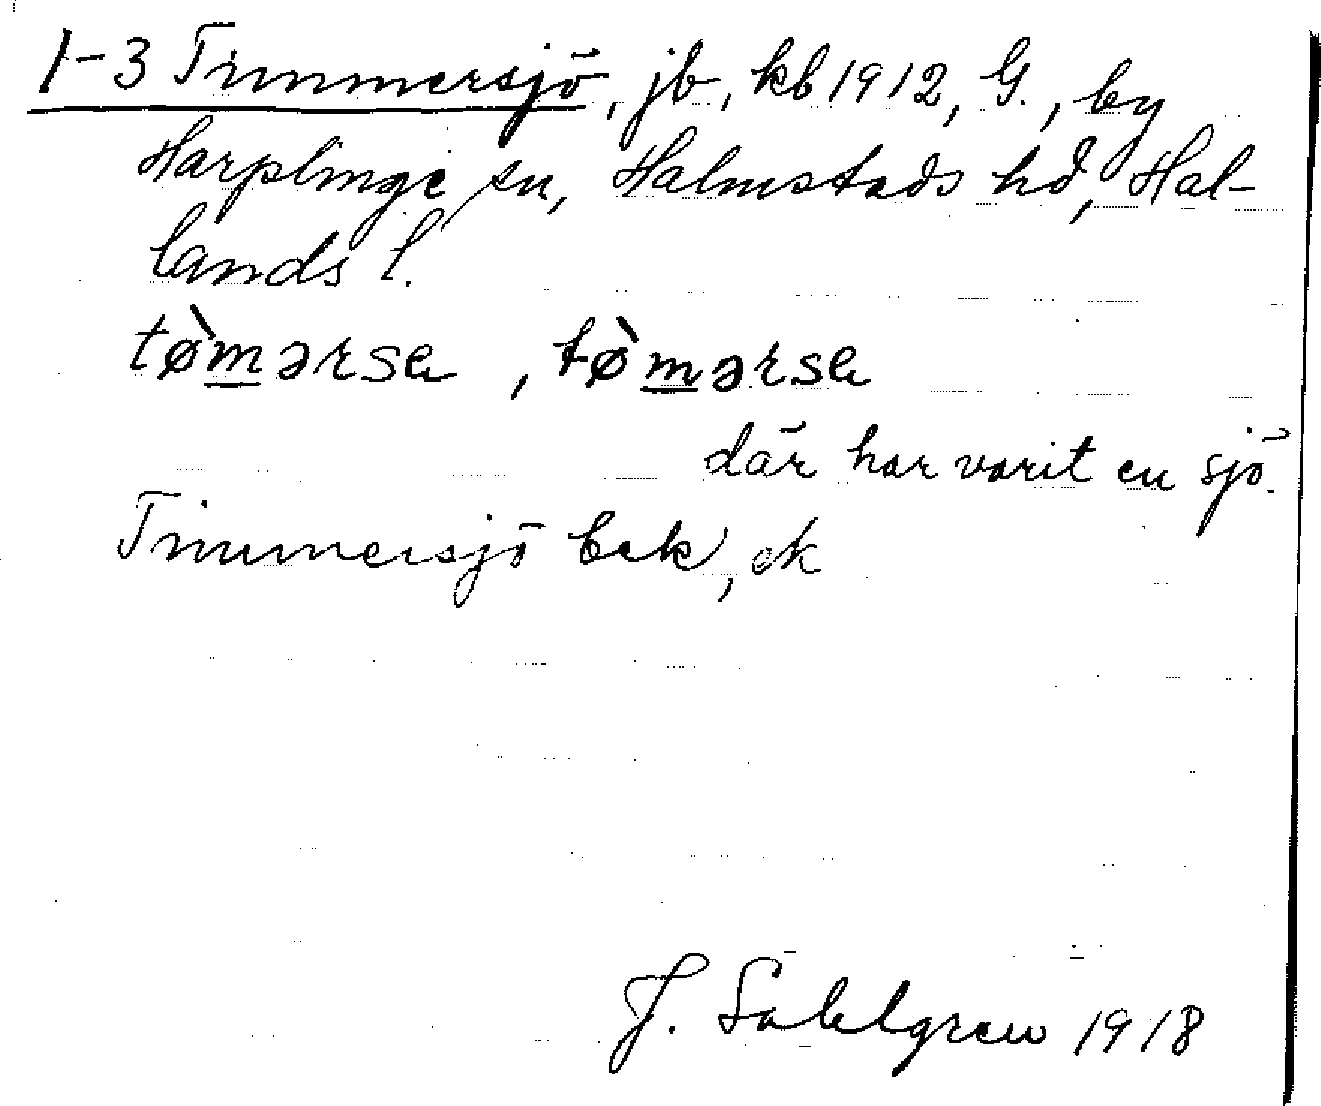 1-3 Timmersjö, jb, kb 1912, G., by
Harplinge sn, Halmstads hd, Hal-
lands l.
tø̀m̲ərse, tø̀m̲ərse
där har varit en sjö.
Timmersjö bek, ek
J. Sahlgren 1918